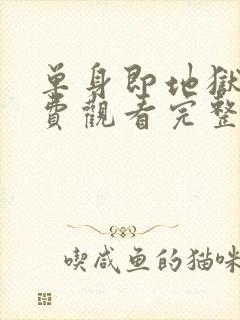 单身即地獄
費觀看完整
喫咸鱼的猫咪